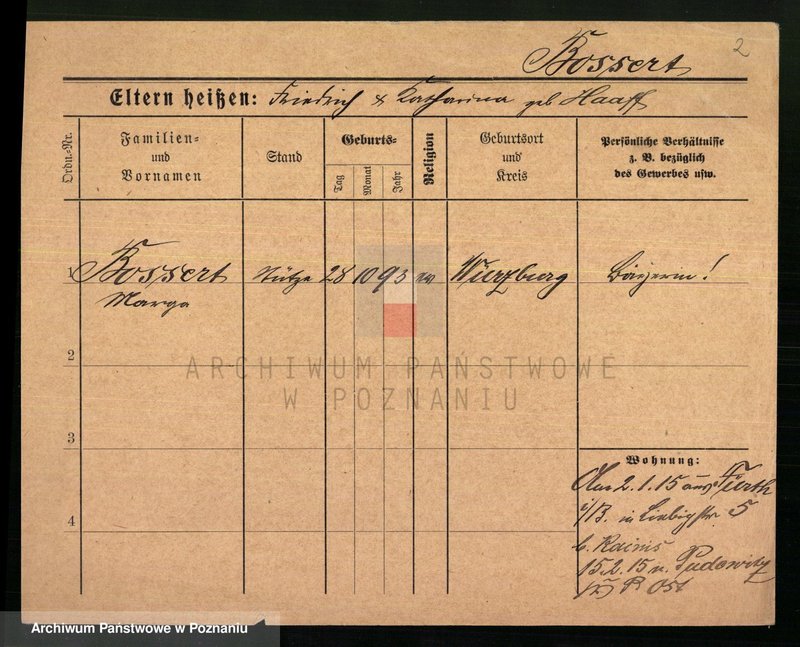 2
Bossert
Eltern heißen: Friedrich & Katharina geb Haaff
Ordn.-Nr.
Familien-
und
Vornamen
Stand
Geburts-
Tag
Monat
Jahr
Religion
Geburtsort
und
Kreis
Persönliche Verhältnisse
z. B. bezüglich
des Gewerbes usw.
1 Bossert Stütze 28 10 93 ev Würzburg Bayerin!
Marga
2
3
4
ARCHIWUM PAŃSTWOWE
W POZNANIU
Wohnung:
Am 2.1.15 aus Fürth
i/B. in Liebigstr 5
b. Kainis
15.2.15 n. Pudewitz
Kr P. Ost
Archiwum Państwowe w Poznaniu